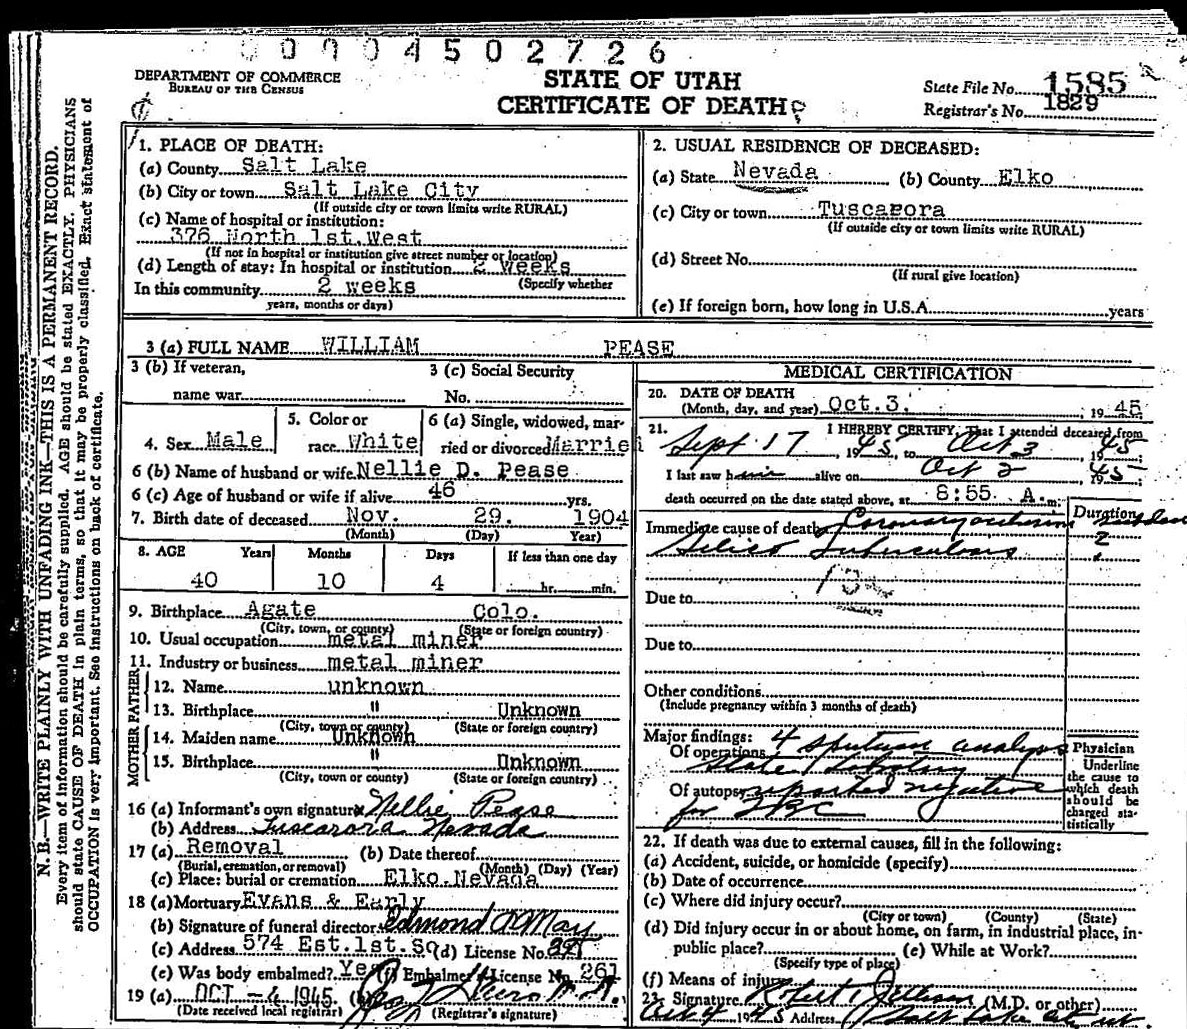 0 0 0 4 5 0 2 7 2 6
DEPARTMENT OF COMMERCE
BUREAU OF THE CENSUS
STATE OF UTAH
CERTIFICATE OF DEATH
State File No. 1585
Registrar's No. 1829
N. B.—WRITE PLAINLY WITH UNFADING INK—THIS IS A PERMANENT RECORD.
Every item of information should be carefully supplied. AGE should be stated EXACTLY. PHYSICIANS
should state CAUSE OF DEATH in plain terms, so that it may be properly classified. Exact statement of
OCCUPATION is very important. See instructions on back of certificate.
1. PLACE OF DEATH:
(a) County Salt Lake
(b) City or town Salt Lake City
(If outside city or town limits write RURAL)
(c) Name of hospital or institution:
376 North 1st. West
(If not in hospital or institution give street number or location)
(d) Length of stay: In hospital or institution 2 weeks
(Specify whether
In this community 2 weeks
years, months or days)
2. USUAL RESIDENCE OF DECEASED:
(a) State Nevada (b) County Elko
(c) City or town Tuscarora
(If outside city or town limits write RURAL)
(d) Street No.
(If rural give location)
(e) If foreign born, how long in U.S.A. years
3 (a) FULL NAME WILLIAM PEASE
3 (b) If veteran,
name war
3 (c) Social Security
No.
4. Sex Male
5. Color or
race White
6 (a) Single, widowed, mar-
ried or divorced Married
6 (b) Name of husband or wife Nellie D. Pease
6 (c) Age of husband or wife if alive 46 yrs.
7. Birth date of deceased Nov. 29. 1904
(Month) (Day) Year)
8. AGE Years Months Days If less than one day
40 10 4 hr. min.
9. Birthplace Agate Colo.
(City, town, or county) (State or foreign country)
10. Usual occupation metal miner
11. Industry or business metal miner
FATHER
12. Name unknown
13. Birthplace " Unknown
(City, town or county) (State or foreign country)
MOTHER
14. Maiden name Unknown
15. Birthplace " Unknown
(City, town or county) (State or foreign country)
16 (a) Informant's own signature x Nellie Pease
(b) Address Tuscarora Nevada
17 (a) Removal (b) Date thereof
(Burial, cremation, or removal) (Month) (Day) (Year)
(c) Place: burial or cremation Elko. Nevada
18 (a) Mortuary Evans & Early
(b) Signature of funeral director Edmond May
(c) Address 574 Est. 1st. So (d) License No.
(e) Was body embalmed? Yes (f) Embalmer's License No. 261
19 (a) OCT - 4 1945 (b)
(Date received local registrar) (Registrar's signature)
MEDICAL CERTIFICATION
20. DATE OF DEATH
(Month, day, and year) Oct. 3. , 19 45
21. I HEREBY CERTIFY, That I attended deceased from
Sept 17, 19 45, to Oct 3 19 45
I last saw him alive on Oct 2 19 45
death occurred on the date stated above, at 8:55 A. m.
Duration
Immediate cause of death Coronary occlusion sudden
Silico Tuberculosis 2
Due to
Due to
Other conditions
(Include pregnancy within 3 months of death)
Major findings:
Of operations 4 sputum analysis
State
Of autopsy reported negative
for TBC
Physician
Underline
the cause to
which death
should be
charged sta-
tistically
22. If death was due to external causes, fill in the following:
(a) Accident, suicide, or homicide (specify)
(b) Date of occurrence
(c) Where did injury occur?
(City or town) (County) (State)
(d) Did injury occur in or about home, on farm, in industrial place, in-
public place? (e) While at Work?
(Specify type of place)
(f) Means of injury
23. Signature Robert (M.D. or other)
Oct 4 1945 Address Salt Lake